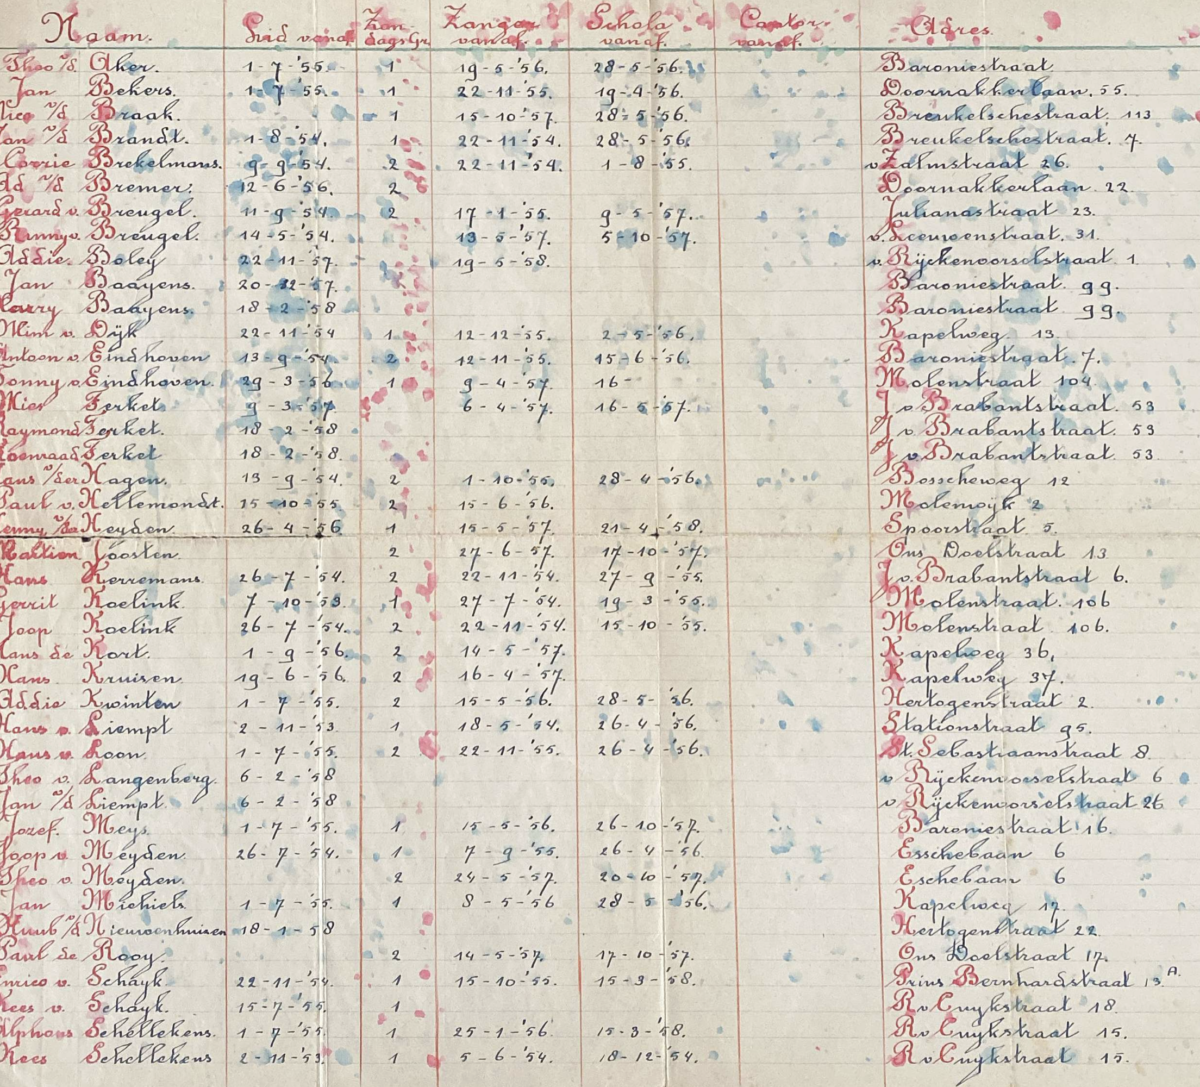 Naam. Lid vanaf Zon dagsgr. Zanger vanaf. Schola vanaf. Cantor vanaf. Adres.
Theo v/d. Aker. 1-7-'55. 1 19-5-'56. 28-5-'56. Baroniestraat.
Jan Bekers. 1-7-'55. 1 22-11-'55. 19-4-'56. Doornakkerlaan. 55.
Nico v/d Braak. 1 15-10-'57. 28-5-'56. Breukelschestraat. 113
Jan v/d Brandt. 1-8-'54. 1 22-11-'54 28-5-'56. Breukelschestraat. 7.
Corrie Brekelmans. 9-9-'54. 2 22-11-'54. 1-8-'55. v. Zalmstraat 26.
Ad v/d Bremer. 12-6-'56. 2 Doornakkerlaan. 22.
Gerard v. Breugel. 11-9-'54. 2 17-1-'55. 9-5-'57. Julianastraat 23.
Runny v. Breugel. 14-5-'54. 13-5-'57. 5-10-'57. v. Leeuwenstraat. 31.
Addie Boley 22-11-'57. 19-5-'58. v. Rijckevorselstraat 1.
Jan Baayens. 20-12-'57. Baroniestraat. 99.
Harry Baayens. 18-2-'58 Baroniestraat 99.
Wim v. Dijk 22-11-'54 1. 12-12-'55. 2-5-'56. Kapelweg. 13.
Antoon v. Eindhoven 13-9-'54 2 12-11-'55. 15-6-'56. Baroniestraat. 7.
Tonny v. Eindhoven. 29-3-'56 1 9-4-'57. 16- Molenstraat 104.
Mies Ferket 9-3-'57 6-4-'57. 16-5-'57. J v. Brabantstraat. 53
Raymond Ferket. 18-2-'58 J v. Brabantstraat. 53
Koenraad Ferket 18-2-'58. J v. Brabantstraat. 53
Hans v/der Hagen. 13-9-'54. 2 1-10-'55. 28-4-'56. Bosscheweg 12
Paul v. Hellemondt. 15-10-'55 2 15-6-'56. Molenwijk 2
Henny v/der Heyden. 26-4-'56 1 15-5-'57. 21-4-'58. Spoorstraat 5.
Martien Joosten. 2 27-6-'57. 17-10-'57. Ons Doelstraat 13
Hans Kerremans. 26-7-'54. 2 22-11-'54. 27-9-'55. J v. Brabantstraat 6.
Gerrit Koelink. 7-10-'53. 1 27-7-'54. 19-3-'55. Molenstraat. 106
Joop Koelink 26-7-'54. 2 22-11-'54. 15-10-'55. Molenstraat 106.
Hans de Kort. 1-9-'56. 2 14-5-'57. Kapelweg 36.
Hans Kruisen. 19-6-'56. 2 16-4-'57. Kapelweg 37.
Addie Kwinten 1-7-'55. 2 15-5-'56. 28-5-'56. Hertogenstraat 2.
Hans v. Liempt 2-11-'53 1 18-5-'54. 26-4-'56. Stationstraat 95.
Hans v. Loon. 1-7-'55. 2 22-11-'55. 26-4-'56. St. Sebastiaanstraat 8.
Theo v. Langenberg. 6-2-'58 v Rijckevorselstraat 6
Jan v/d Liempt. 6-2-'58 v Rijckevorselstraat 26
Jozef. Meys. 1-7-'55. 1 15-5-'56. 26-10-'57. Baroniestraat 16.
Joop v. Meyden. 26-7-'54. 1 7-9-'55. 26-4-'56 Esschebaan 6
Theo v. Meyden. 2 24-5-'57. 20-10-'57. Eschebaan 6
Jan Michiels 1-7-'55. 1 8-5-'56 28-5-'56. Kapelweg 17.
Huub v/d Nieuwenhuizen 18-1-'58 Hertogenstraat 22.
Paul de Rooy. 2 14-5-'57. 17-10-'57. Ons Doelstraat 17.
Enrico v. Schayk. 22-11-'54. 1 15-10-'55. 15-3-'58. Prins Bernhardstraat 13 A.
Kees v. Schayk. 15-7-'55. 1 R v Cuykstraat 18.
Alphons Schellekens. 1-7-'55 1 25-1-'56. 15-3-'58. R v Cuykstraat 15.
Kees Schellekens 2-11-'53. 1 5-6-'54. 18-12-'54. R v Cuykstraat 15.